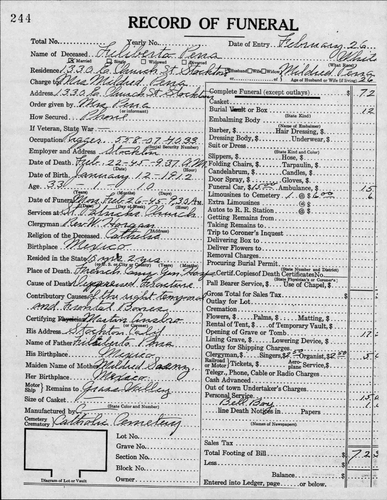 244
RECORD OF FUNERAL
Total No. Yearly No. Date of Entry February 26
Name of Deceased Filiberto Pena White
(What Race)
Married Single Widowed Divorced
Residence 1330 E. Church St Stockton Husband Wife Widow Mildred Pena
Age of Husband or Wife (if living) 26
Charge to Mrs Mildred Pena
Address 1330 E. Church St Stockton
Order given by Mrs Pena
How Secured Phone
If Veteran, State War
Occupation 558-07-4033
(Social Security Number)
Employer and Address Stockton
Date of Death Feb. 22-45-9:37 A.M.
(Hour)
Date of Birth January-12-1912
Age 33 1 10
(Years) (Months) (Days)
Date of Funeral Mon Feb 26-45 9:30 AM
Services at Church
Clergyman Rev W. Horgan
Religion of the Deceased Catholic
Birthplace Mexico
Resided in the State
Place of Death French Camp Gen Hosp
Cause of Death Depressed fracture
Contributory Causes of the right temporal
and frontal bones
Certifying Physician
His Address Stockton Calif
Name of Father Filiberto Pena
His Birthplace Mexico
Maiden Name of Mother Mildred
Her Birthplace Mexico
Motor Ship Remains to Grass Valley
Size of Casket
(State Color and Number)
Manufactured by
Cemetery Crematory Catholic Cemetery
Lot No.
Grave No.
Section No.
Block No.
Owner
Diagram of Lot or Vault
Complete Funeral (except outlays) $ 72
Casket
Burial Vault or Box 12
(State Kind)
Embalming Body
(Name of Embalmer)
Barber, $ Hair Dressing, $
Dressing Body, $ Underwear, $
Suit or Dress
(State Kind and Color)
Slippers, $ Hose, $
Folding Chairs, $ Tarpaulin, $
Candelabrum, $ Candles, $
Door Spray, $ Gloves, $
Funeral Car, $15.00 Ambulance, $ 15
Limousines to Cemetery 1 @ $6.00 6
Extra Limousines @ $
Autos to R. R. Station @ $
Getting Remains from
Taking Remains to
Trip to Coroner's Inquest
Delivering Box to
Deliver Flowers to
Removal Charges
Procuring Burial Permit
(State Number and District)
Certif. Copies of Death Certificates No.
Pall Bearer Service, $ Use of Chapel, $
Gross Total for Sales Tax $
Outlay for Lot
Cremation
Flowers, $ Palms, $ Matting, $
Rental of Tent, $ of Temporary Vault, $
Opening of Grave or Tomb 17
Lining Grave, $ Lowering Device, $
Outlay for Shipping Charges
Clergyman, $ Singers, $ Organist, $
Railroad or Motor Tickets, $ Aero-plane Service, $
Telegr., Phone, Cable or Radio Charges
Cash Advanced
Out of town Undertaker's Charges
Personal Service
line Death Notices in Papers
(Names of Newspapers)
Sales Tax
Total Footing of Bill $
Less
Balance
Entered into Ledger, page or below.